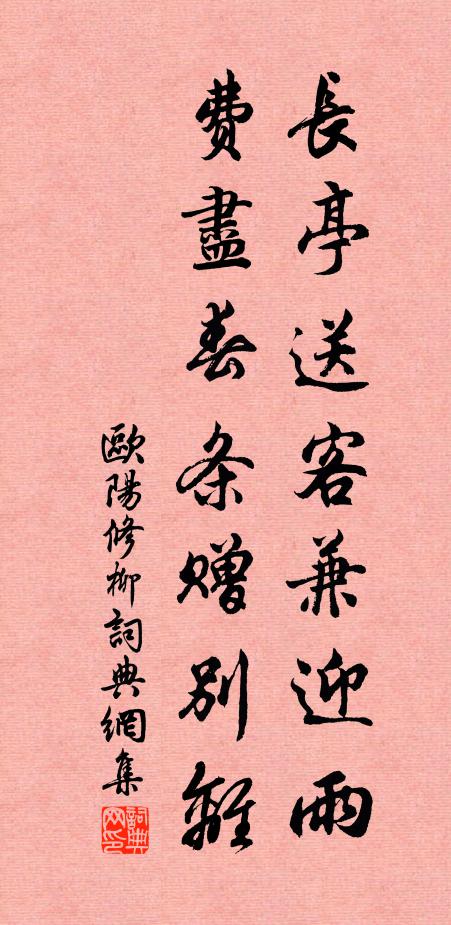 長亭送客兼迎雨
費盡春条贈別離
歐陽修柳詞典網集
詞典网印